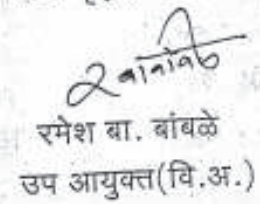 रमेश बा. बांबळे
उप आयुक्त(वि.अ.)